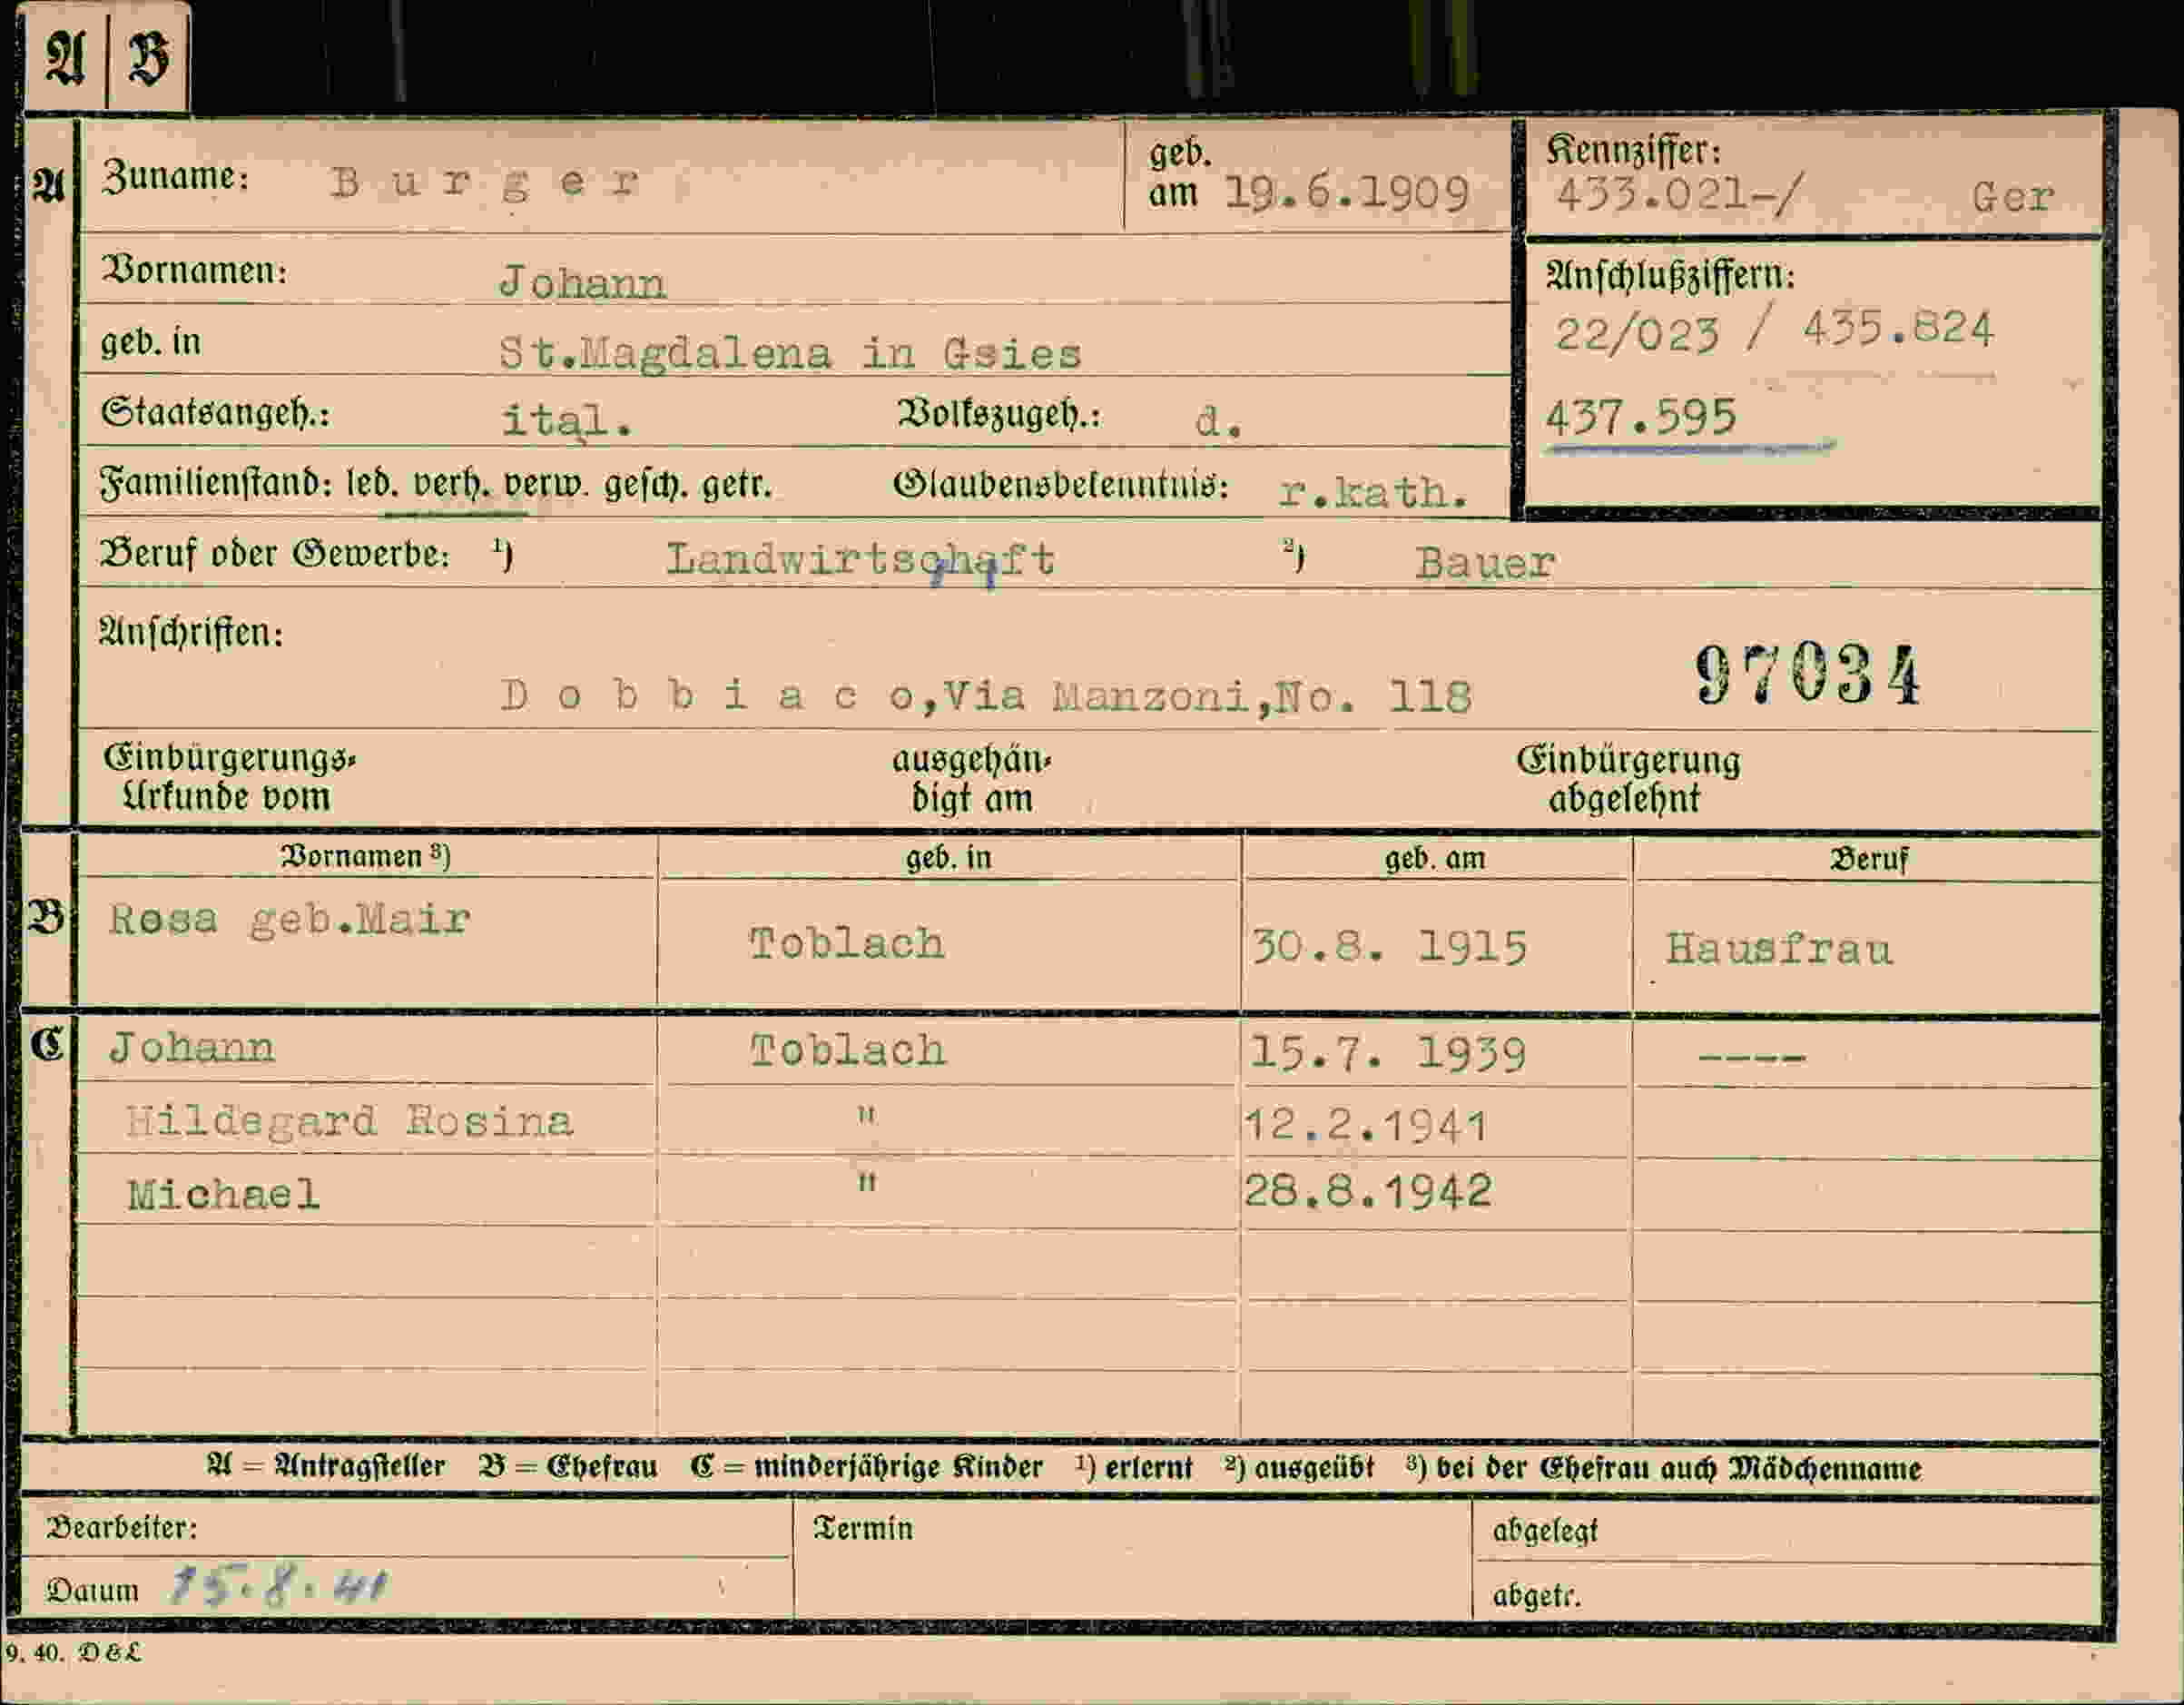 A B
A Zuname: Burger geb. am 19.6.1909 Kennziffer: 433.021-/ Ger
Vornamen: Johann Anschlußziffern:
geb. in St.Magdalena in Gsies 22/023 / 435.824
Staatsangeh.: ital. Volkszugeh.: d. 437.595
Familienstand: led. verh. verw. gesch. getr. Glaubensbekenntnis: r.kath.
Beruf oder Gewerbe: ¹) Landwirtschaft ²) Bauer
Anschriften:
Dobbiaco,Via Manzoni,No. 118 97034
Einbürgerungs- ausgehän- Einbürgerung
Urkunde vom digt am abgelehnt
Vornamen ³) geb. in geb. am Beruf
B Rosa geb.Mair Toblach 30.8. 1915 Hausfrau
C Johann Toblach 15.7. 1939 ----
Hildegard Rosina " 12.2.1941
Michael " 28.8.1942
A = Antragsteller B = Ehefrau C = minderjährige Kinder ¹) erlernt ²) ausgeübt ³) bei der Ehefrau auch Mädchenname
Bearbeiter: Termin abgelegt
Datum 15.8.41 abgetr.
9. 40. D & L